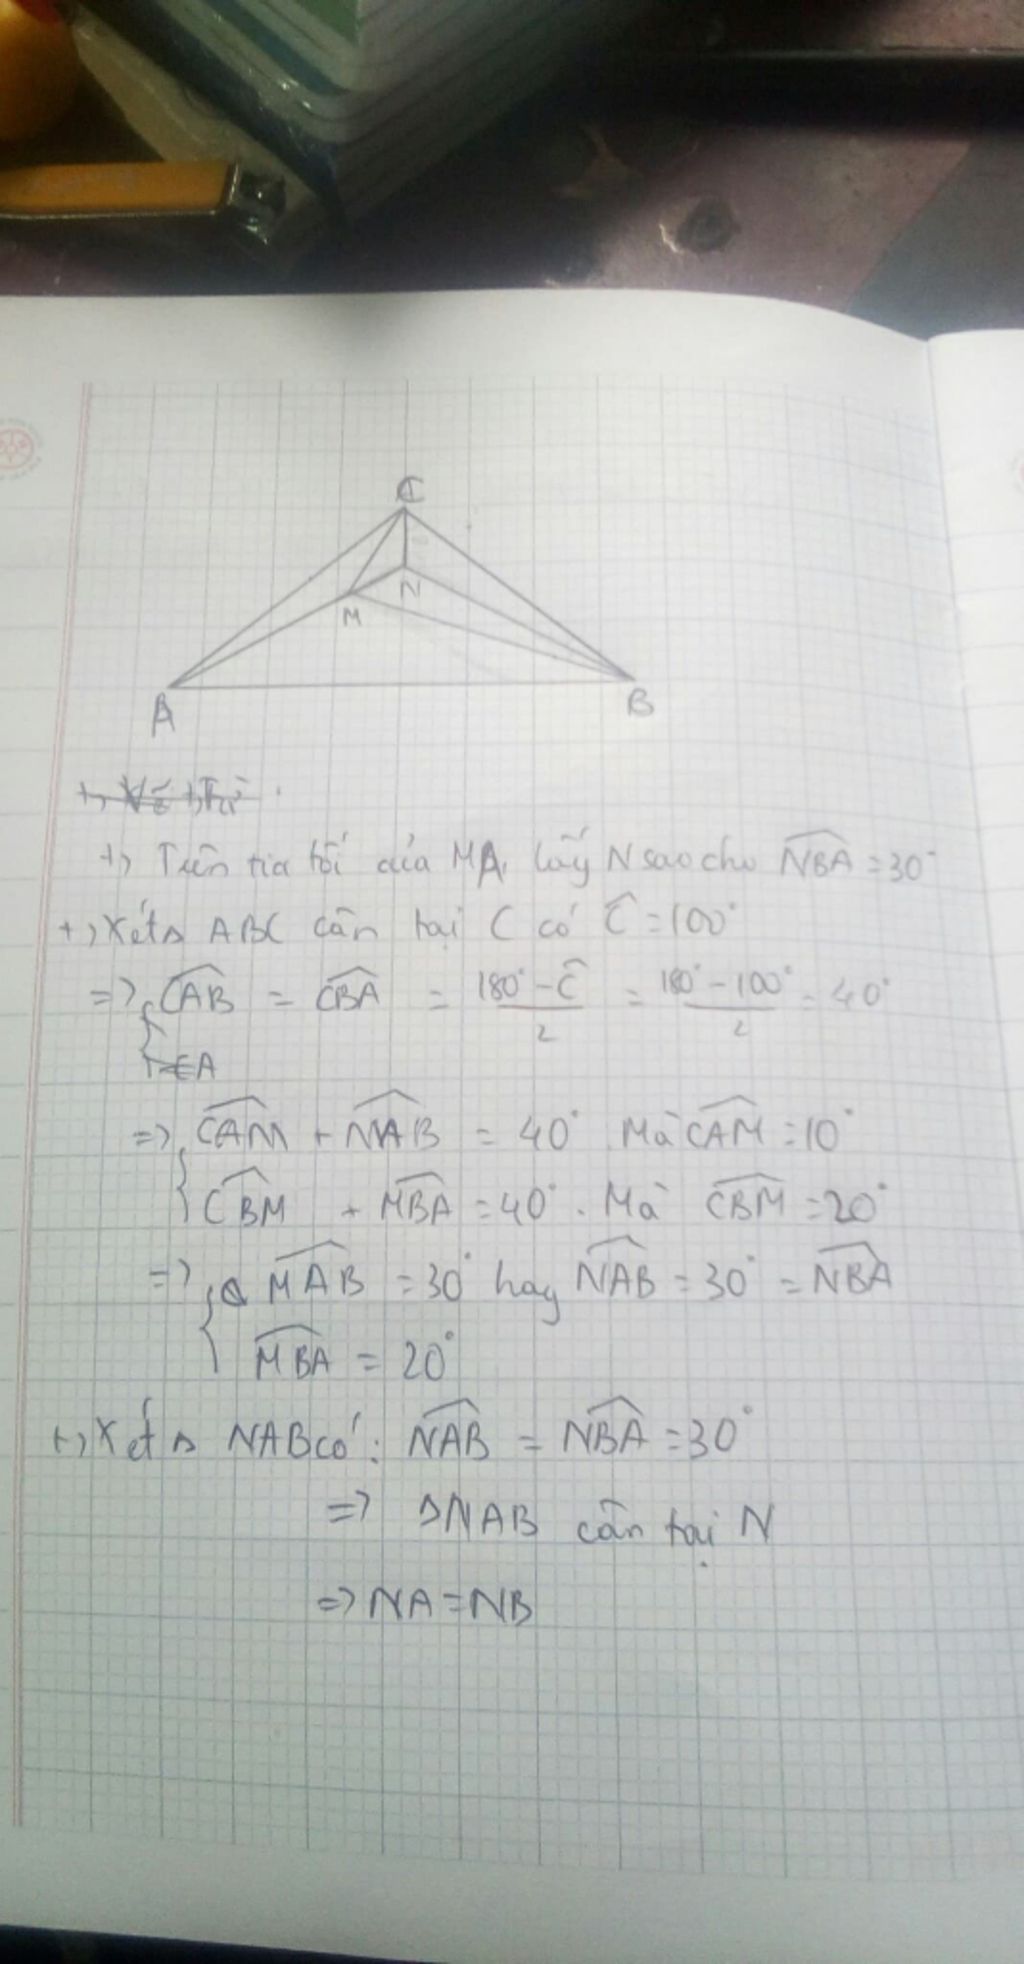 C
N
M
A
B
+, Vẽ +, Từ
+, Trên tia đối của MA, lấy N sao cho NBA = 30°
+, Xét Δ ABC cân tại C có Ĉ = 100°
=> { CAB = CBA = 180° - Ĉ / 2 = 180° - 100° / 2 = 40°
=> { CAM + MAB = 40° Mà CAM = 10°
CBM + MBA = 40°. Mà CBM = 20°
=> { MAB = 30° hay NAB = 30° = NBA
MBA = 20°
+, Xét Δ NAB có: NAB = NBA = 30°
=> ΔNAB cân tại N
=> NA = NB